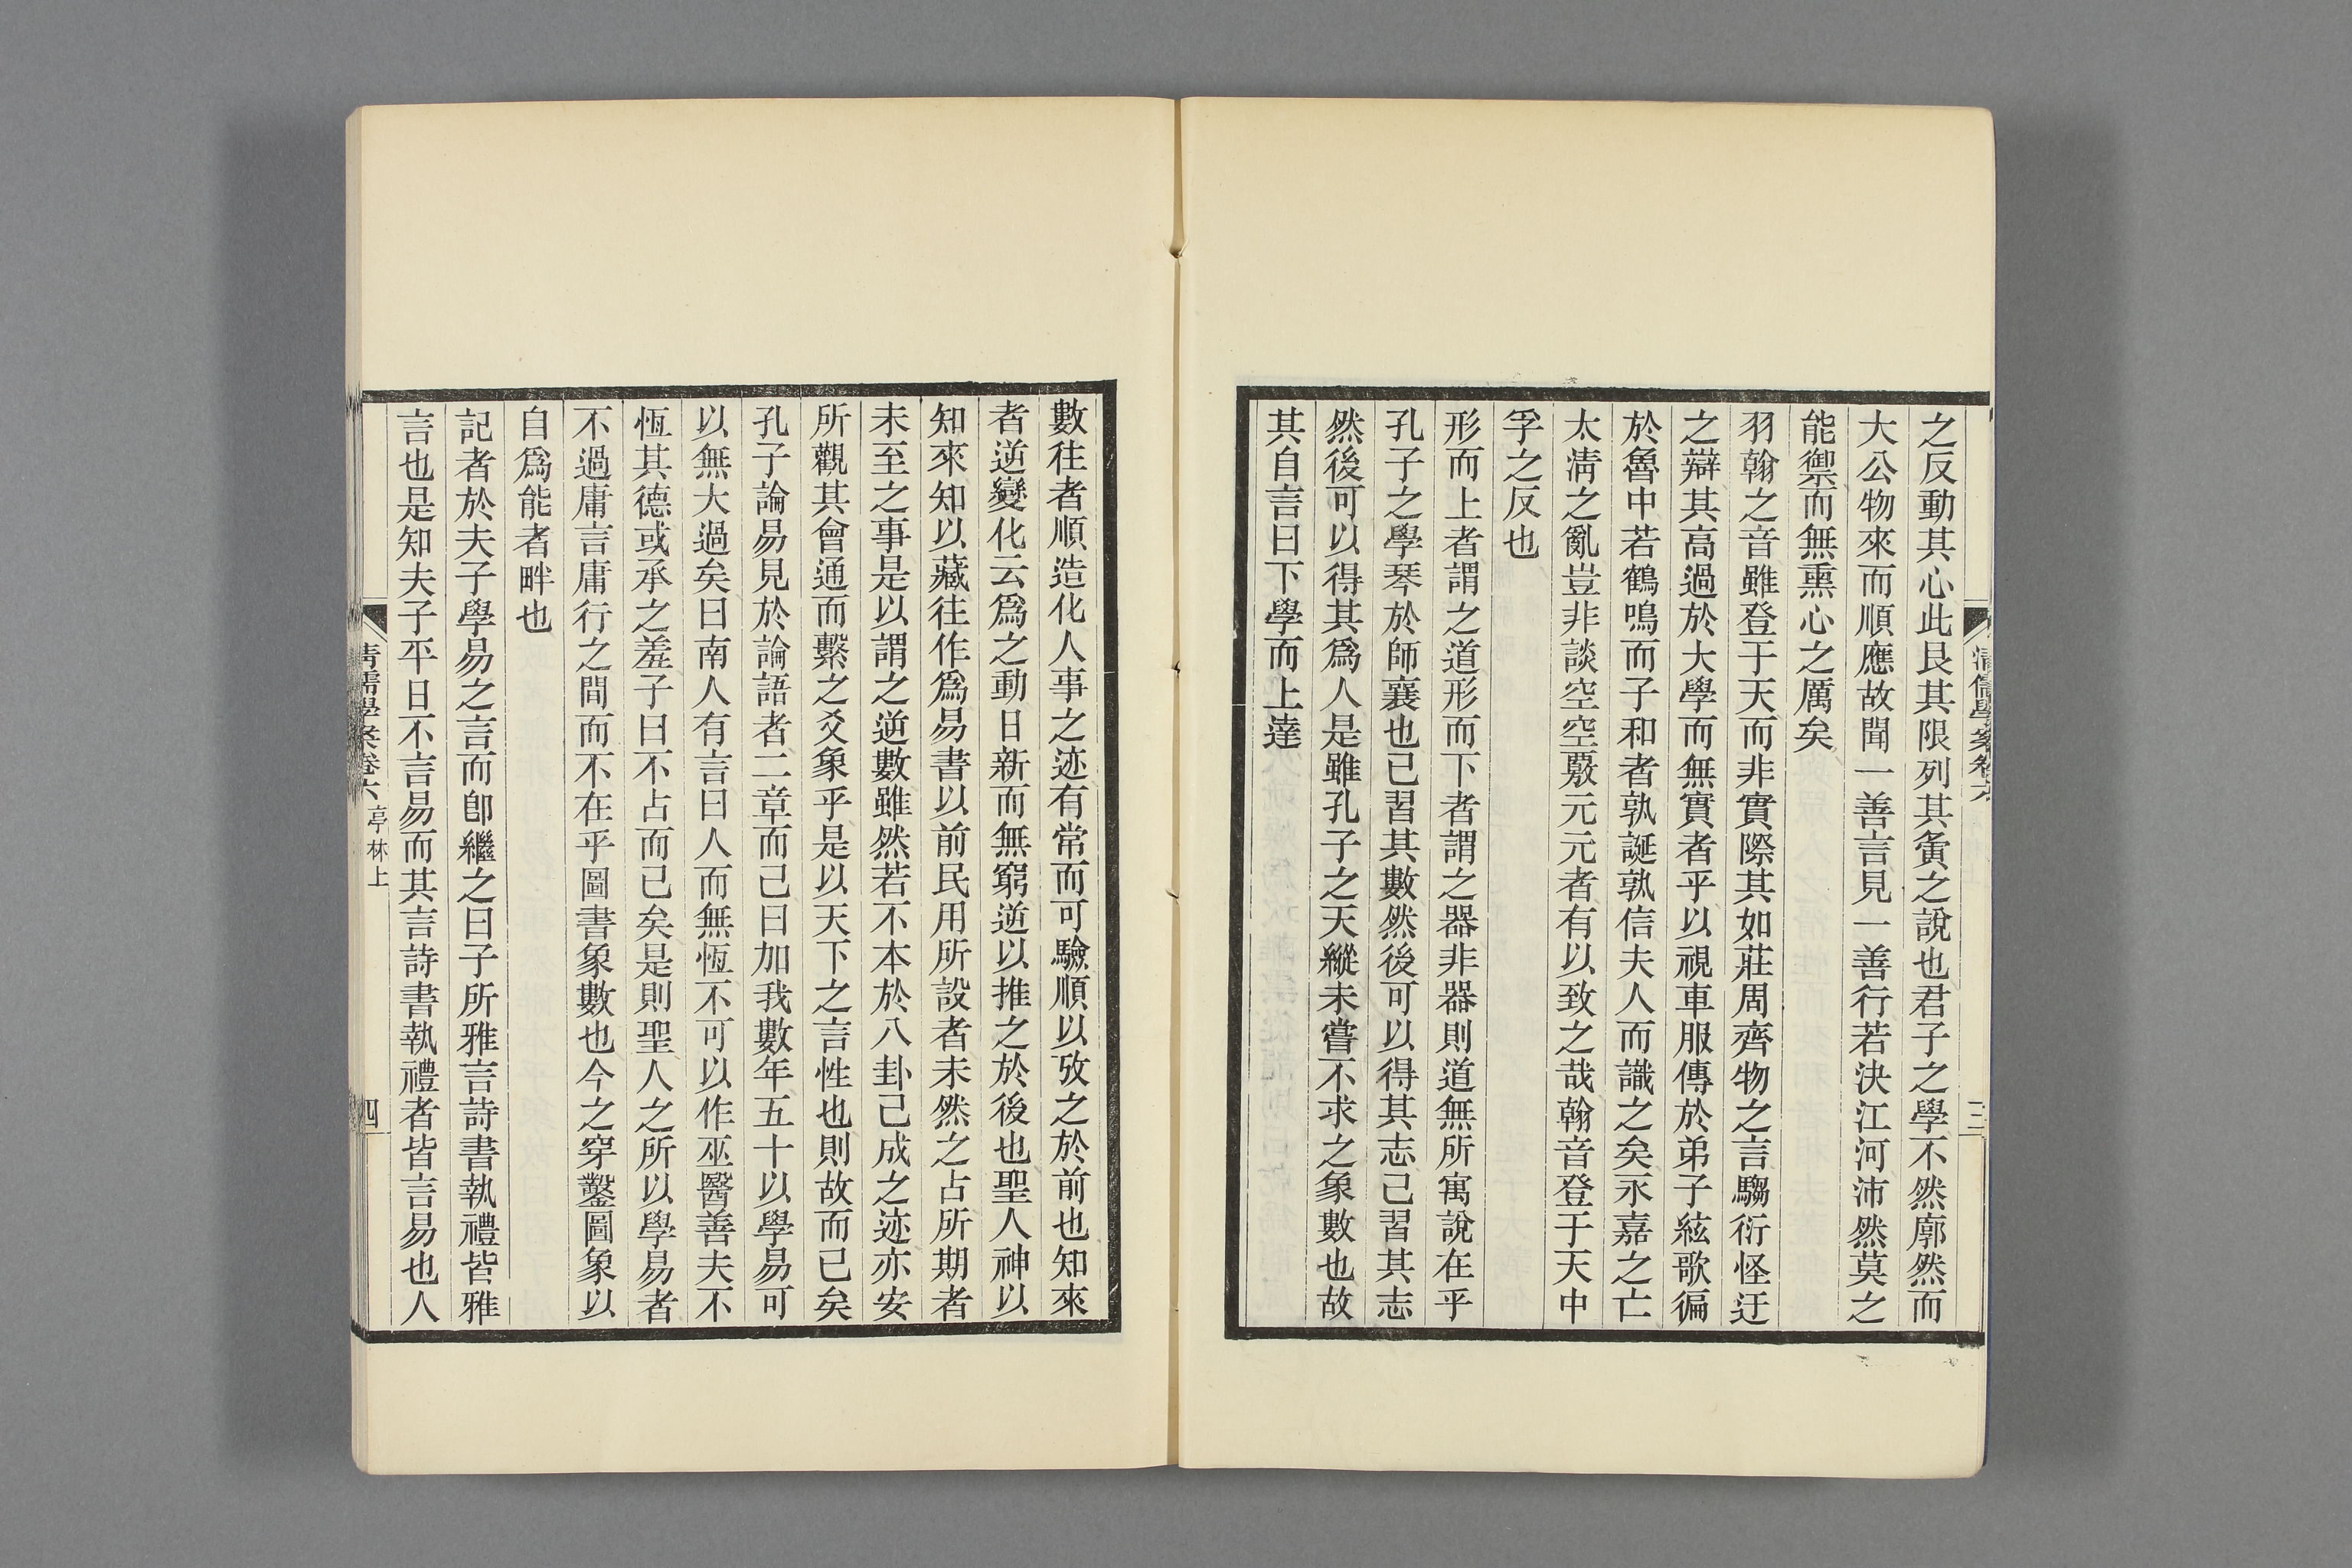 清儒學案卷六
三
之反動其心此艮其限列其夤之說也君子之學不然廓然而
大公物來而順應故聞一善言見一善行若決江河沛然莫之
能禦而無熏心之厲矣
羽翰之音雖登于天而非實際其如莊周齊物之言騶衍怪迂
之辯其高過於大學而無實者乎以視車服傳於弟子絃歌徧
於魯中若鶴鳴而子和者孰誕孰信夫人而識之矣永嘉之亡
太淸之亂豈非談空空覈元元者有以致之哉翰音登于天中
孚之反也
形而上者謂之道形而下者謂之器非器則道無所寓說在乎
孔子之學琴於師襄也已習其數然後可以得其志已習其志
然後可以得其爲人是雖孔子之天縱未嘗不求之象數也故
其自言曰下學而上達
數往者順造化人事之迹有常而可驗順以攷之於前也知來
者逆變化云爲之動日新而無窮逆以推之於後也聖人神以
知來知以藏往作爲易書以前民用所設者未然之占所期者
未至之事是以謂之逆數雖然若不本於八卦已成之迹亦安
所觀其會通而繫之爻象乎是以天下之言性也則故而已矣
孔子論易見於論語者二章而已曰加我數年五十以學易可
以無大過矣曰南人有言曰人而無恆不可以作巫醫善夫不
恆其德或承之羞子曰不占而已矣是則聖人之所以學易者
不過庸言庸行之間而不在乎圖書象數也今之穿鑿圖象以
自爲能者畔也
記者於夫子學易之言而卽繼之曰子所雅言詩書執禮皆雅
言也是知夫子平日不言易而其言詩書執禮者皆言易也人
清儒學案卷六 亭林上
四